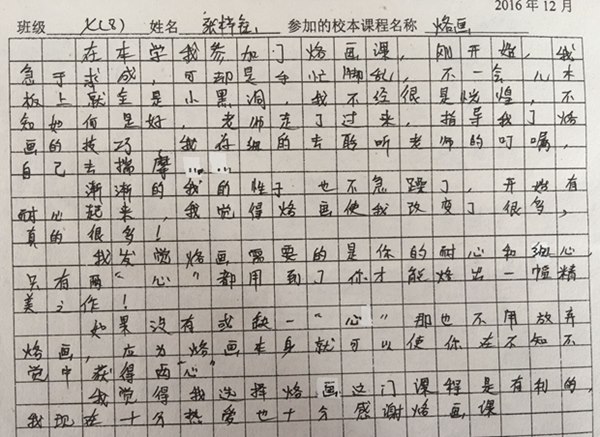 2016年12月
班级 七(8) 姓名 张梓 参加的校本课程名称 烙画
在本学我参加了烙画课，刚开始，我
急于求成，可却是手忙脚乱，不一会儿木
板上就全是小黑洞，我不经很是恍惶，不
知如何是好，老师走了过来，指导我了烙
画的技巧，我仔细的去聆听老师的叮嘱，
自己去揣摩……
渐渐的我的性子也不急躁了，开始有
耐心起来，我觉得烙画使我改变了很多，
真的很多！
我发觉烙画需要的是你的耐心和细心，
只有两“心”都用到了你才能烙出一幅精
美之作！
如果没有或缺一“心”那也不用放弃
烙画，应为烙画本身就可以使你在不知不
觉中获得两“心”
我觉得我选择烙画这门课程是有利的，
我现在十分热爱也十分感谢烙画课